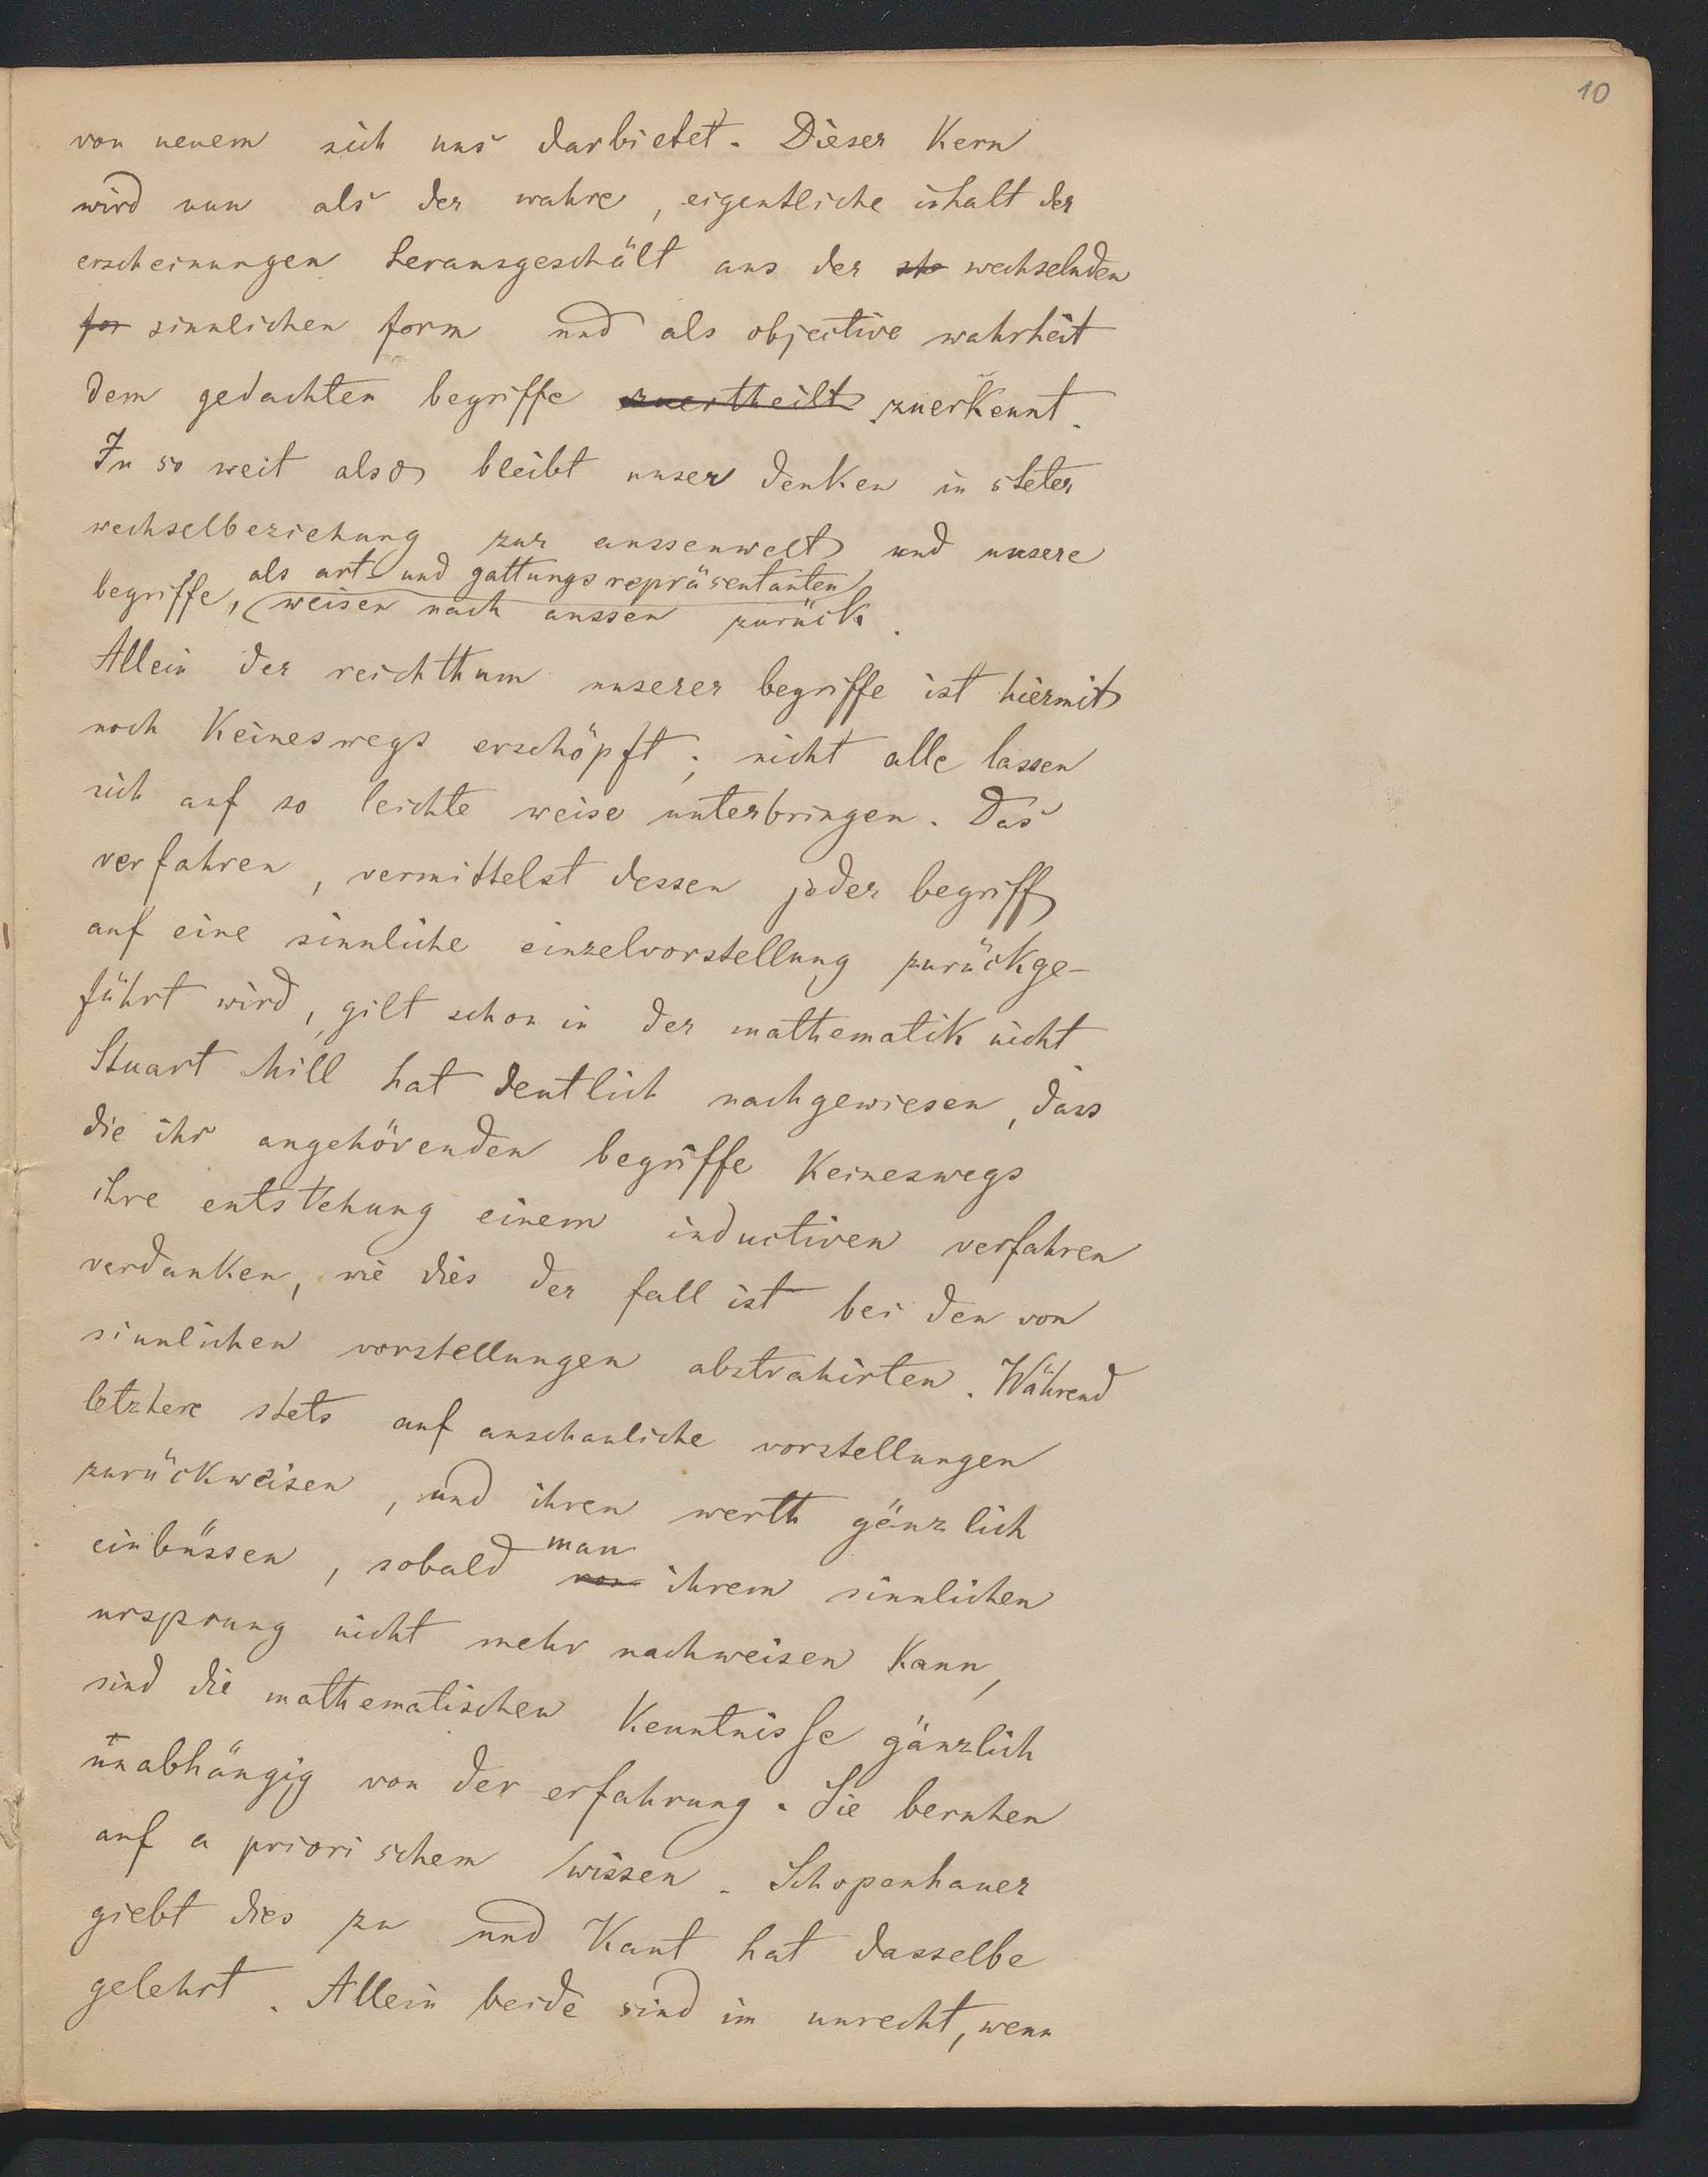 10
von neuem sich uns darbietet. Dieser Kern
wird nun als der wahre, eigentliche inhalt der
erscheinungen herausgeschält aus der ste wechselnden
for sinnlichen form und als objective wahrheit
dem gedachten begriffe zuertheilt zuerkennt.
In so weit also bleibt unser denken in steter
wechselbeziehung zur aussenwelt und unsere
als art- und gattungsrepräsentanten
begriffe, weisen nach aussen zurück.
Allein der reichthum unserer begriffe ist hiermit
noch Keineswegs erschöpft; nicht alle lassen
sich auf so leichte weise unterbringen. Das
verfahren, vermittelst dessen jeder begriff
auf eine sinnliche einzelvorstellung zurückge-
führt wird, gilt schon in der mathematik nicht.
Stuart Mill hat deutlich nachgewiesen, dass
die ihr angehörenden begriffe Keineswegs
ihre entstehung einem inductiven verfahren
verdanken, wie dies der fall ist bei den von
sinnlichen vorstellungen abstrahirten. Während
letztere stets auf anschauliche vorstellungen
zurückweisen, und ihren werth gänzlich
man
einbüssen, sobald von ihrem sinnlichen
ursprung nicht mehr nachweisen Kann,
sind die mathematischen Kenntnisse gänzlich
unabhängig von der erfahrung. Sie beruhen
auf a priorischem wissen. Schopenhauer
giebt dies zu und Kant hat dasselbe
gelehrt. Allein beide sind im unrecht, wenn